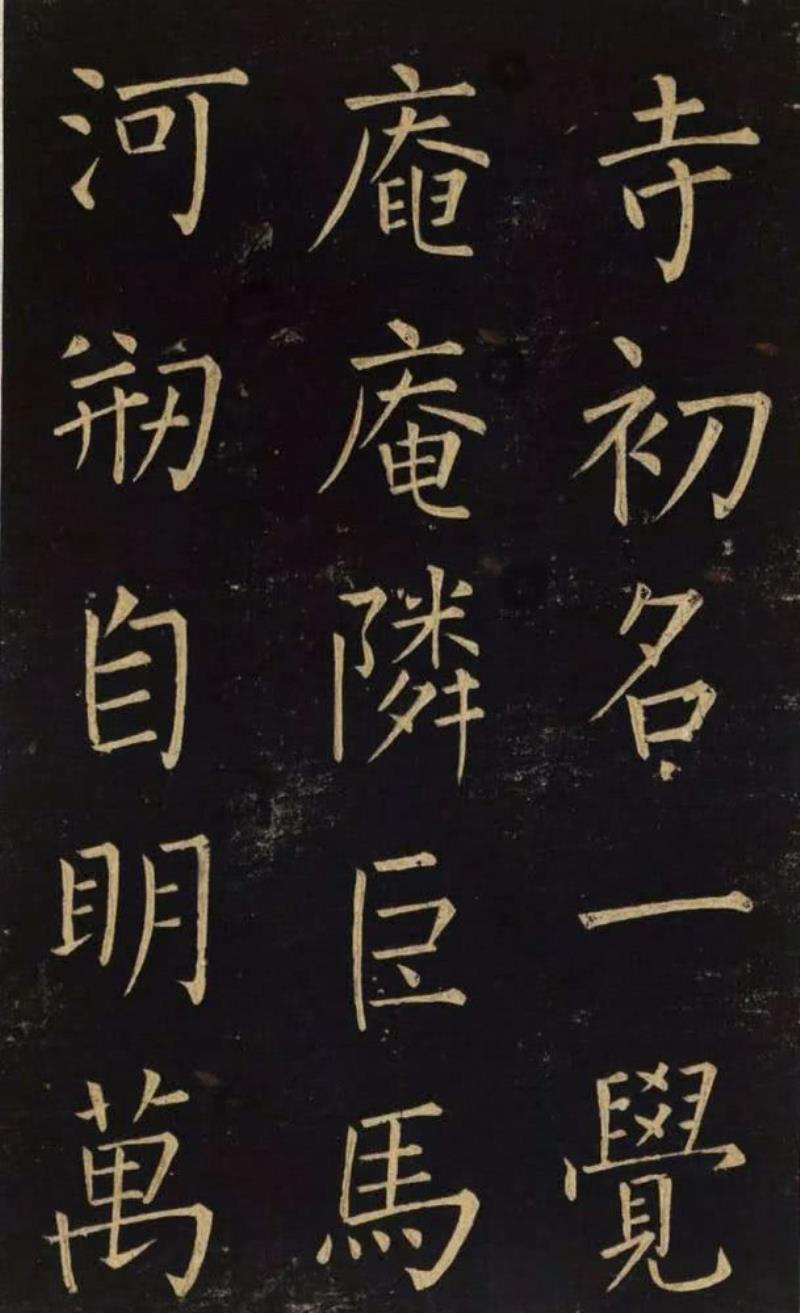 寺初名一覺
庵庵隣巨馬
河剏自明萬